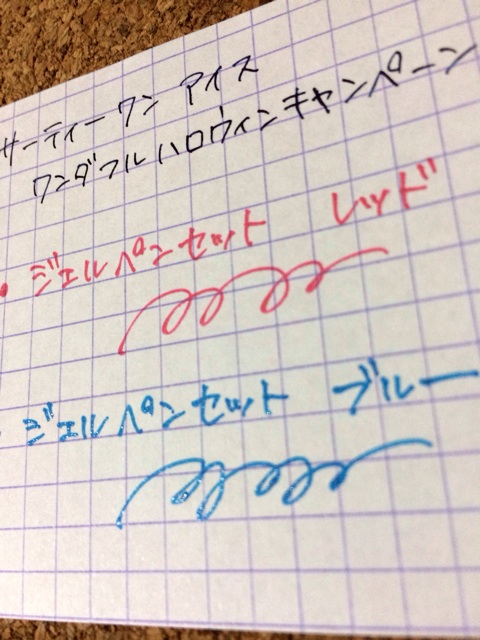 サーティーワン アイス
ワンダフルハロウィンキャンペーン
・ジェルペンセット レッド
・ジェルペンセット ブルー